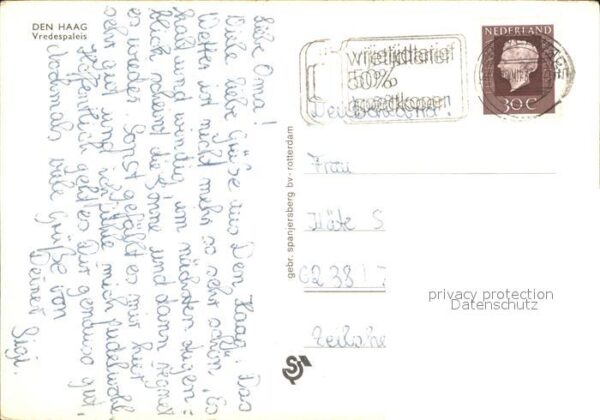 DEN HAAG
Vredespaleis
Liebe Oma!
Viele liebe Grüße aus Den Haag! Das
Wetter ist nicht mehr so sehr schön. Es
ist kalt und windig, im nächsten Augen=
blick scheint die Sonne und dann regnet
es wieder. Sonst gefällt es mir hier
sehr gut und ich fühle mich pudelwohl.
Hoffentlich geht es Dir genauso gut.
Nochmals viele Grüße von
Deiner Sigi.
gebr. spanjersberg bv - rotterdam
50%
NEDERLAND
30 C
Deutschland!
Frau
Käte S
6238 / 7
privacy protection
Datenschutz